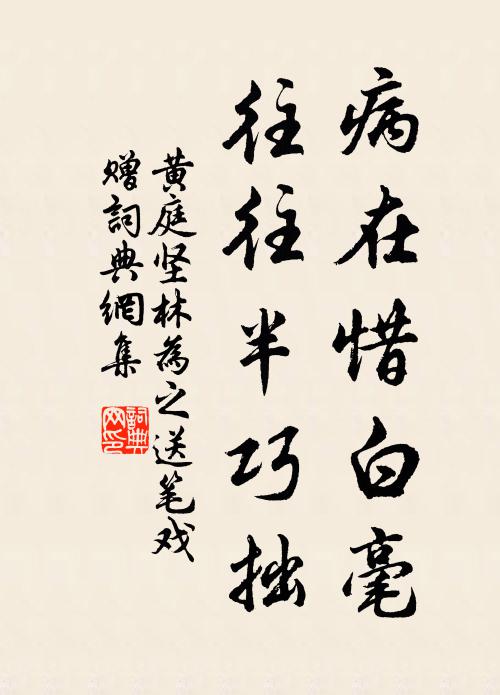 病在惜白毫
往往半巧拙
黄庭坚林為之送笔戏
赠詞典網集
詞典網印